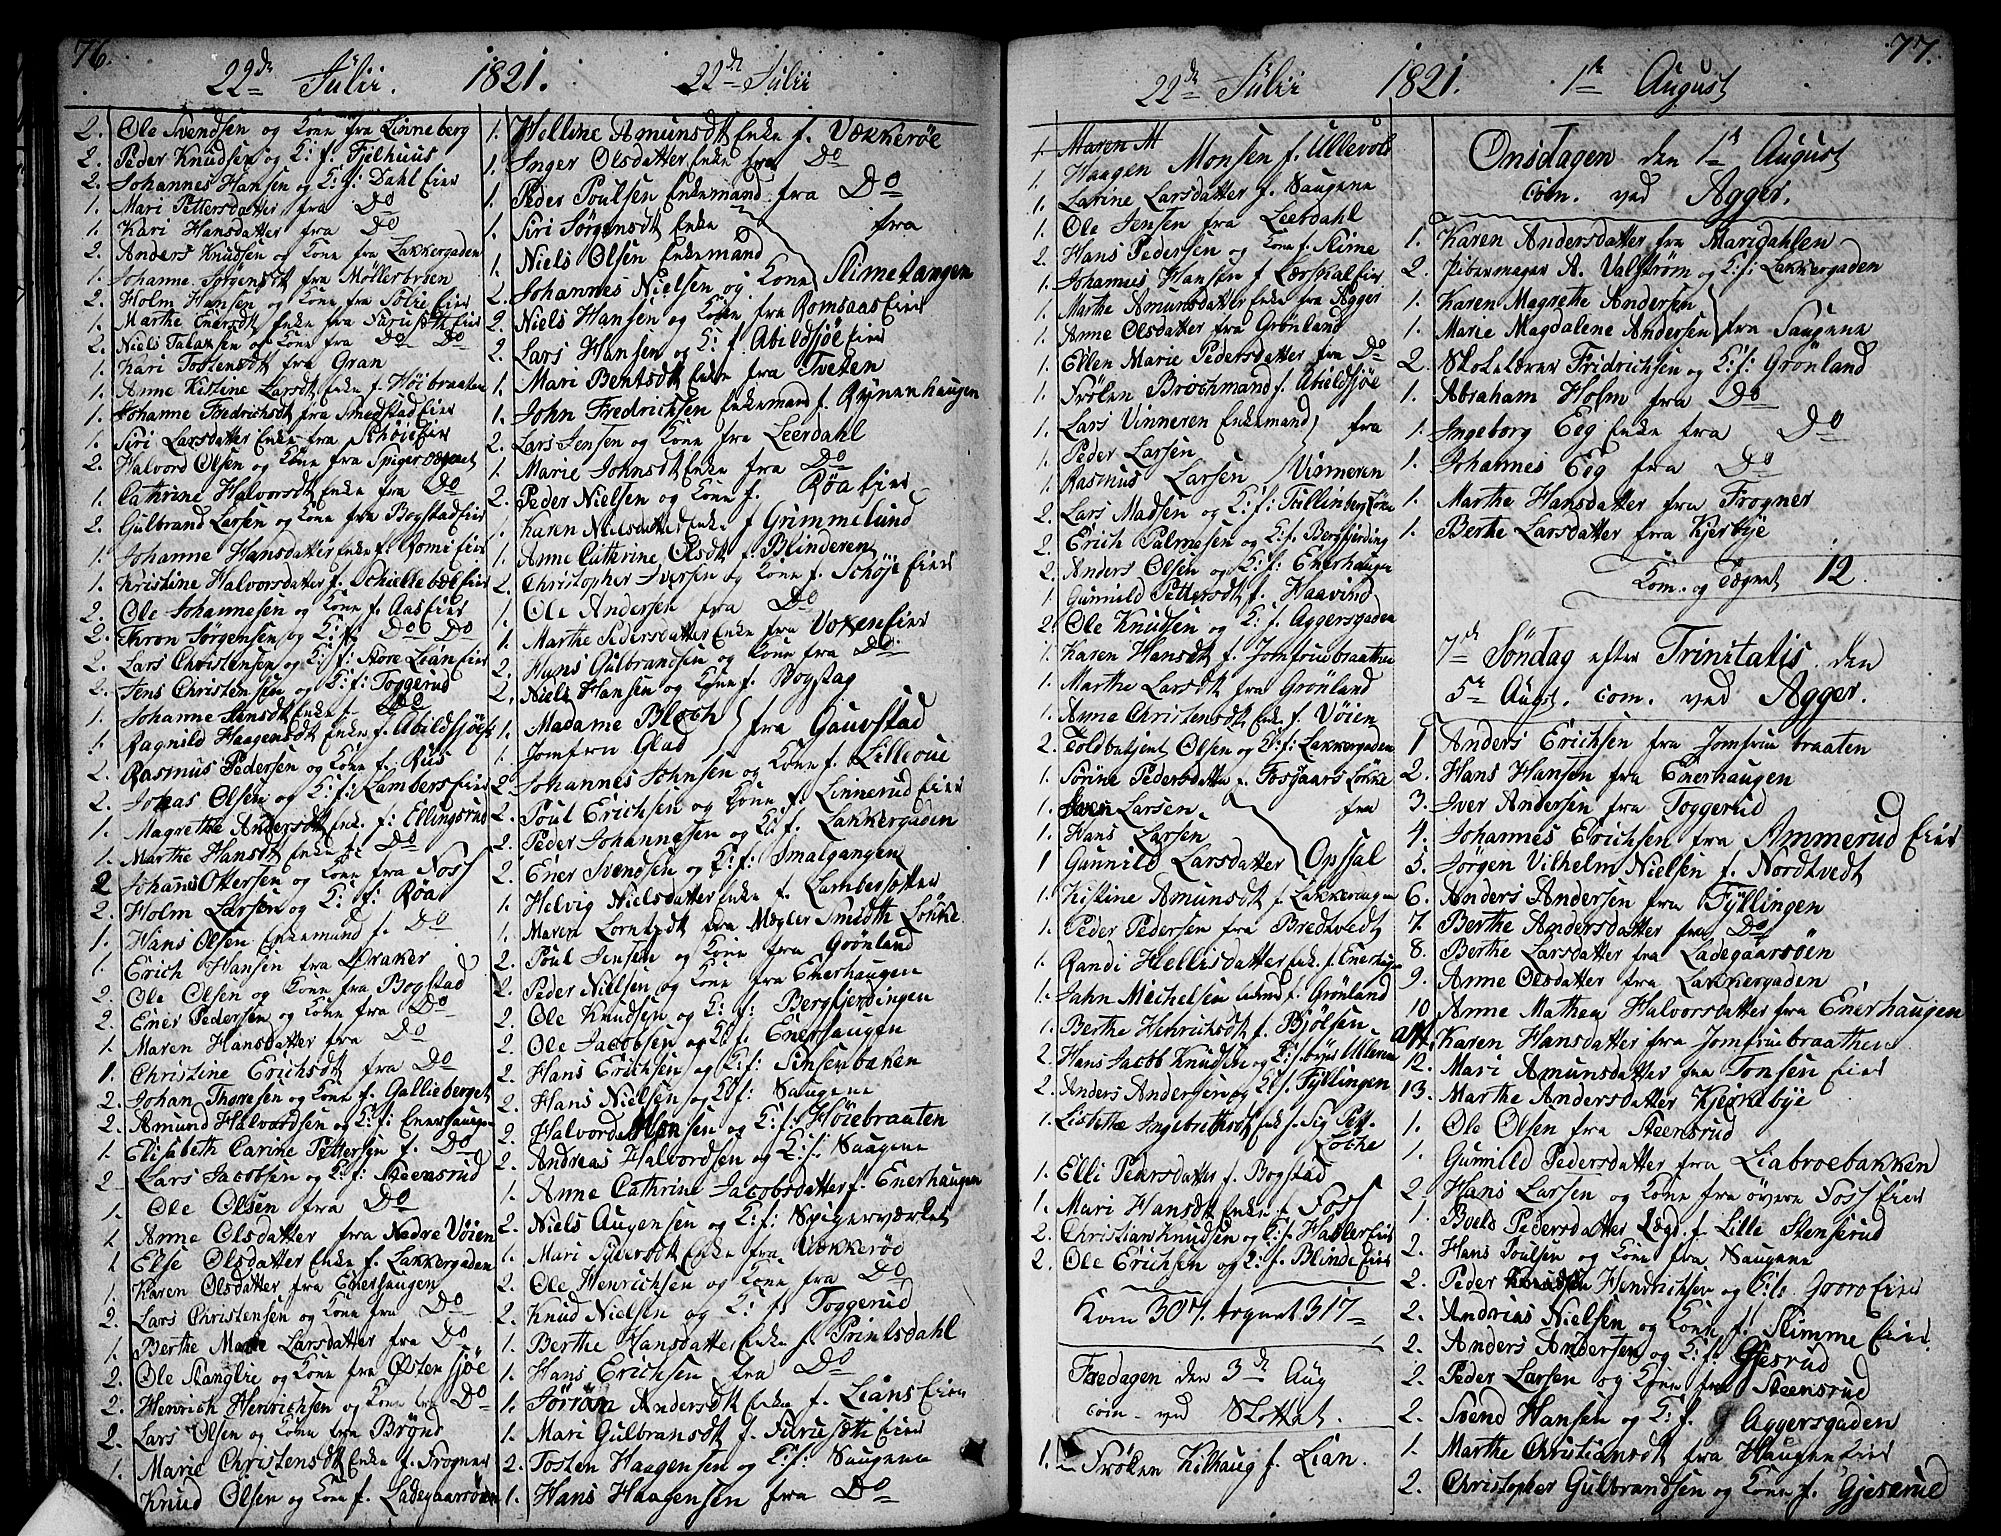 76.
22de Julii. 1821. 22de Julii
2. Ole Svendsen og Kone fra Linneberg
2. Peder Knudsen og K: f. Fjelhuus
2. Johannes Hansen og K: f: Dahl Eier
1. Mari Pettersdatter fra Do
1. Kari Hansdatter fra Do
2. Anders Knudsen og Kone fra Lakkergaden
1. Johanne Jørgensdt fra Møllerbyen
2. Holm Hansen og Kone fra
1. Marthe Enersdt Enke fra Furusæt Eier
2. Niels og Kone fra Do Do
1. Kari Tostensdt fra Gran
1. Anne Kistine Larsdt Enke f. Høibraaten
1. Johanne Fredrichsdt fra Smedstad Eier
1. Siri Larsdatter Enke fra Schøi Eier
2. Halvord Olsen og Kone fra Spigerværket
1. Cathrine Halvorsdt Enke f. Do
2. Gulbrand Larsen og Kone fra Bogstad Eier
1. Johanne Hansdatter Enke f. Eier
1. Kristine Halvorsdatter f. Schiellebæk Eier
2. Ole Johannesen og Kone f. Aas Eier
2. Thron Jørgensen og K: f. Do Do
2. Lars Christensen og K: f: Store Lian Eier
2. Jens Christensen og K: f: Toggerud
1. Johanne Jensdt Enke f. Do
1. Ragnild Haagensdt Enke f. Abildsjøe
2. Rasmus Pedersen og Kone f. Rus
2. Johas Olsen og K: f: Lambers Eier
1. Magrethe Andersdt Enke f: Ellingsrud
1. Marthe Hansdt Enke f: Do
2. Johans Ottersen og Kone fra Foss
2. Holm Larsen og K: f: Røa
1. Hans Olsen Enkemand f. Do
1. Erich Hansen fra Øraker
2. Ole Olsen og Kone fra Bogstad
2. Ener Pedersen og Kone fra Do
1. Maren Hansdatter fra Do
1. Christine Erichsdt fra Do
2. Johan Thoresen og Kone f. Gallieberget
2. Amund Halvordsen og K: f: Enerhaugen
1. Elisabeth Carine Pettersen f. Do
2. Lars Jacobsen og K: f: Steensrud
1. Ole Olsen fra Do
1. Anne Olsdatter fra Nedre Vøien
1. Else Olsdatter Enke f. Lakkergaden
1. Karen Olsdatter fra Enerhaugen
2. Lars Christensen og Kone fra Do
1. Berthe Marie Larsdatter fra Do
2. Ole Stanglie og Kone fra Østensjøe
2. Henrich Henrichsen og Kone fra Do
2. Lars Olsen og Kone fra Brønd
1. Marie Christensdt Enke f. Frogner
Knud Olsen og Kone f. Ladegaarsøen
1. Helline Amunsdt Enke f. Vækkerøe
1. Inger Olsdatter Enke fra Do
1. Peder Poulsen Enkemand fra Do
1. Siri Jørgensdt Enke fra
1. Niels Olsen Enkemand
2. Johannes Nielsen og Kone Slimetangen
2. Niels Hansen og Kone fra Romsaas Eier
2. Lars Hansen og K: f. Abildsjøe Eier
1. Mari Bentsdt Enke fra Tveten
1. John Fredrichsen Enkemand f. Rynenhaugen
2. Lars Jensen og Kone fra Leerdahl
1. Marie Johnsdt Enke fra Do
2. Peder Nielsen og Kone f. Røa Eier
1. Karen Nielsdatter Enke f Grimmelund
1. Anne Catherine Olsdt f. Blinderen
2. Christopher Iversen og Kone f. Schøje Eier
1. Ole Andersen fra Do
1. Marthe Pedersdatter Enke fra Voxen Eier
2. Hans Gulbrandsen og Kone fra Do
2. Niels Hansen og Kone f. Bogstad
1. Madame Bloch fra Gaustad
1. Jomfru Glad
2. Johannes Johnsen og Kone f. Lilleoue
2. Poul Erichsen og Kone f. Linnerud Eier
2. Peder Johannesen og K: f. Lakkergaden
2. Ener Svendsen og K: f: Smalgangen
1. Helvig Nielsdatter Enke f. Lambersetter
1. Maren Lorntsdt fra Mægler Smidth Løkke
2. Poul Jensen og Kone fra Grønland
2. Peder Nielsen og Kone fra Enerhaugen
2. Ole Knudsen og K: f: Bergfjerdingen
2. Ole Jacobsen og K: f: Enerhaugen
2. Hans Erichsen og K: f: Sinsenbaken
2. Hans Nielsen og K: f: Saugene
2. Halvord Olsen og K: f: Høiebraaten
2. Andreas Halvordsen og K: f: Saugene
1. Anne Cathrine Jacobsdatter f. Enerhaugen
2. Niels Augensen og K: f: Spigerværket
1. Mari Syversdt Enke fra Vækkerøe
2. Ole Henrichsen og Kone fra Do
2. Knud Nielsen og K: f. Toggerud
1. Berthe Hansdatter Enke f. Printsdahl
1. Hans Erichsen fra Do
1. Jøran Andersdt Enke f. Lians Eier
1. Mari Gulbransdt f. Furusætt Eier
2. Tosten Haagensen og K: f: Saugene
1. Hans Haagensen fra Do
77.
22de Julii 1821. 1ste August
1. Maren M
1. Haagen Monsen f. Ullevold
1. Larine Larsdatter f. Saugene
1. Ole Jensen fra Leerdahl
2. Hans Pedersen og Kone f. Slime
1. Johannes Hansen f Eier
1. Marthe Amunsdatter Enke fra Agger
1. Anne Olsdatter fra Grønland
1. Ellen Marie Pedersdatter fra Do
1. Frøken Brochmand f. Abildsjøe
1. Lars Vinneren Enkemand fra
1. Peder Larsen
1. Rasmus Larsen Vinneren
2. Lars Madsen og K: f: Tillinberg Løkke
2. Erich Palmesen og K: f. Bergfjerding
2. Anders Olsen og K: f. Enerhaugen
1. Gunnild Pettersdt f. Haavind
2. Ole Knudsen og K: f. Aggersgaden
1. Karen Hansdt f. Jomfruebraathen
1. Marthe Larsdt fra Grønland
1. Anne Christensdt Enke f. Vøien
2. Toldbetjent Olsen og K: f: Lakkergaden
1. Sørine Pedersdatter f. Løkke
1. Iver Larsen fra
1. Hans Larsen
1 Gunnild Larsdatter Opsal
1. Kistine Amunsdt f. Lakkergaden
1. Peder Pedersen fra Bredtvedt
1. Randi Hellisdatter Enke f. Enerhaugen
1. Jahn Michelsen f. Grønland
1. Berthe Henrichsdt f. Bjølsen
2. Hans Jacob Knudsen og K: f.
2. Anders Andersen og K: f. Fyllingen
1. Lisbethe Ingebrethsdt Enke f.
Løcke
1. Elli Pedersdatter f. Bogstad
1. Mari Hansdt Enke f. Foss
2. Christian Knudsen og K: f. Hasler Eier
2. Ole Erichsen og K: f. Blinde Eier
Kom 307. tegnet 317
Fredagen den 3de Aug
com. ved Slottet.
1. Frøken Kilhaug f. Lian.
Onsdagen den 1ste August
Com. ved Agger.
1. Karen Andersdatter fra Maridahlen
2. Pibemager A. Valstrøm og K: f. Lakkergaden
1. Karen Magrethe Andersen
1. Marie Magdalene Andersen fra Saugene
2. Skolelærer Fridrichsen og K: f: Grönland
1. Abraham Holm fra Do
1. Ingeborg Eeg Enke fra Do
1. Johannes Eeg fra Do
1. Marthe Hansdatter fra Frogner
1. Berthe Larsdatter fra Kjerbye
Kom. og Tegnet 12.
7de Søndag efter Trinitatis den
5te Augst. com. ved Agger.
1 Anders Erichsen fra Jomfrue braaten
2. Hans Hansen fra Enerhaugen
3. Iver Andersen fra Toggerud
4. Johannes Erichsen fra Ammerud Eier
5. Jørgen Vilhelm Nielsen f. Nordtvedt
6. Anders Andersen fra Fyllingen
7. Berthe Andersdatter fra Do
8. Berthe Larsdatter fra Ladegaarsöen
9. Anne Olsdatter fra Lakkergaden
10. Anne Mathea Halvorsdatter fra Enerhaugen
11. Karen Hansdatter fra Jomfruebraathen
12. Mari Amunsdatter fra Tonsen Eier
13. Marthe Andersdatter Kjerkebye
1. Ole Olsen fra Steensrud
1. Gunnild Pedersdatter fra Liabroebakken
2. Hans Larsen og Kone fra øvere Foss Eier
1. Boeld Pedersdatter Lægd f. Lille Stenserud
2. Hans Poulsen og Kone fra Saugene
2. Peder Hendrichsen og K: f. Groro Eier
2. Andreas Nielsen og Kone f. Slimme Eier.
2. Anders Andersen og K: f. Gjesrud
2. Peder Larsen og Kone fra Steensrud
2. Svend Hansen og K: f. Aggersgaden
1. Marthe Christiansdt fra Haugen Eier
2. Christopher Gulbrandsen og Kone f. Gjeserud